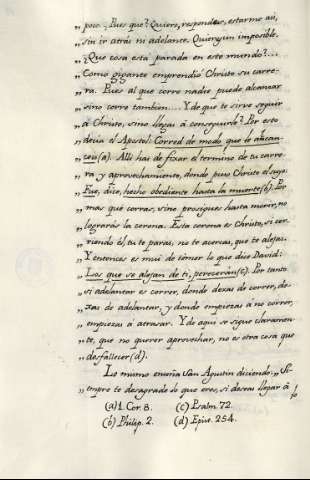 „poco. Pues que? Quiero, respondes, estarme aí,
„sin ir atrás ni adelante. Quieres un imposible.
„¿Que cosa está parada en este mundo?...
„Como gigante emprendió Christo su carre-
„ra. Pues al que corre nadie puede alcanzar
„sino corre tambien.... Y de que te sirve seguir
„á Christo, sino llegas á conseguirle? Por esto
„decia el Apostol: Corred de modo que le alcan-
„ceis(a). Alli hai de fixar el termino de tu carre-
„ra y aprovechamiento, donde puso Christo el suyo:
„Fue, dice, hecho obediente hasta la muerte(b). Por
„mas que corras, sino prosigues hasta morir, no
„lograrás la corona. Esta corona es Christo, si cor-
„riendo él, tu te paras, no te acercas, que te alejas.
„Y entonces es mui de temer lo que dixo David:
„Los que se alejan de ti, perecerán(c). Por tanto
„si adelantar es correr, donde dexas de correr, de-
„xas de adelantar, y donde empiezas á no correr,
„empiezas á atrasar. Y de aqui se sigue claramen-
„te, que no querer aprovechar, no es otra cosa que
„desfallecer(d).
Lo mismo enseña San Agustin diciendo: „Si-
„empre te desagrade lo que eres, si deseas llegar á
(a) 1. Cor. 8. (c) Psalm. 72.
(b) Philip. 2. (d) Epist. 254.